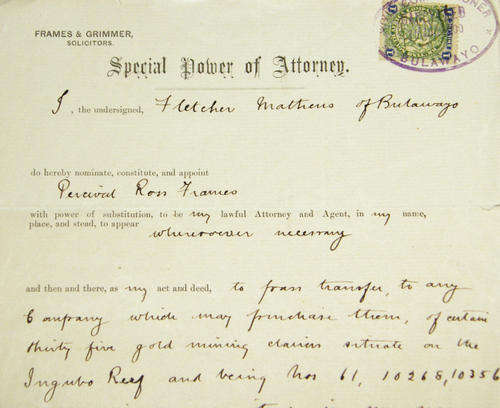 FRAMES & GRIMMER,
SOLICITORS.
BULAWAYO
Special Power of Attorney.
I, the undersigned, Fletcher Mathews of Bulawayo
do hereby nominate, constitute, and appoint
Percival Ross Frames
with power of substitution, to be my lawful Attorney and Agent, in my name,
place, and stead, to appear
wheresoever necessary
and then and there, as my act and deed, to pass transfer, to any
Company which may purchase them, of certain
thirty five gold mining claims situate on the
Ingubo Reef and being Nos 61, 10268, 10356